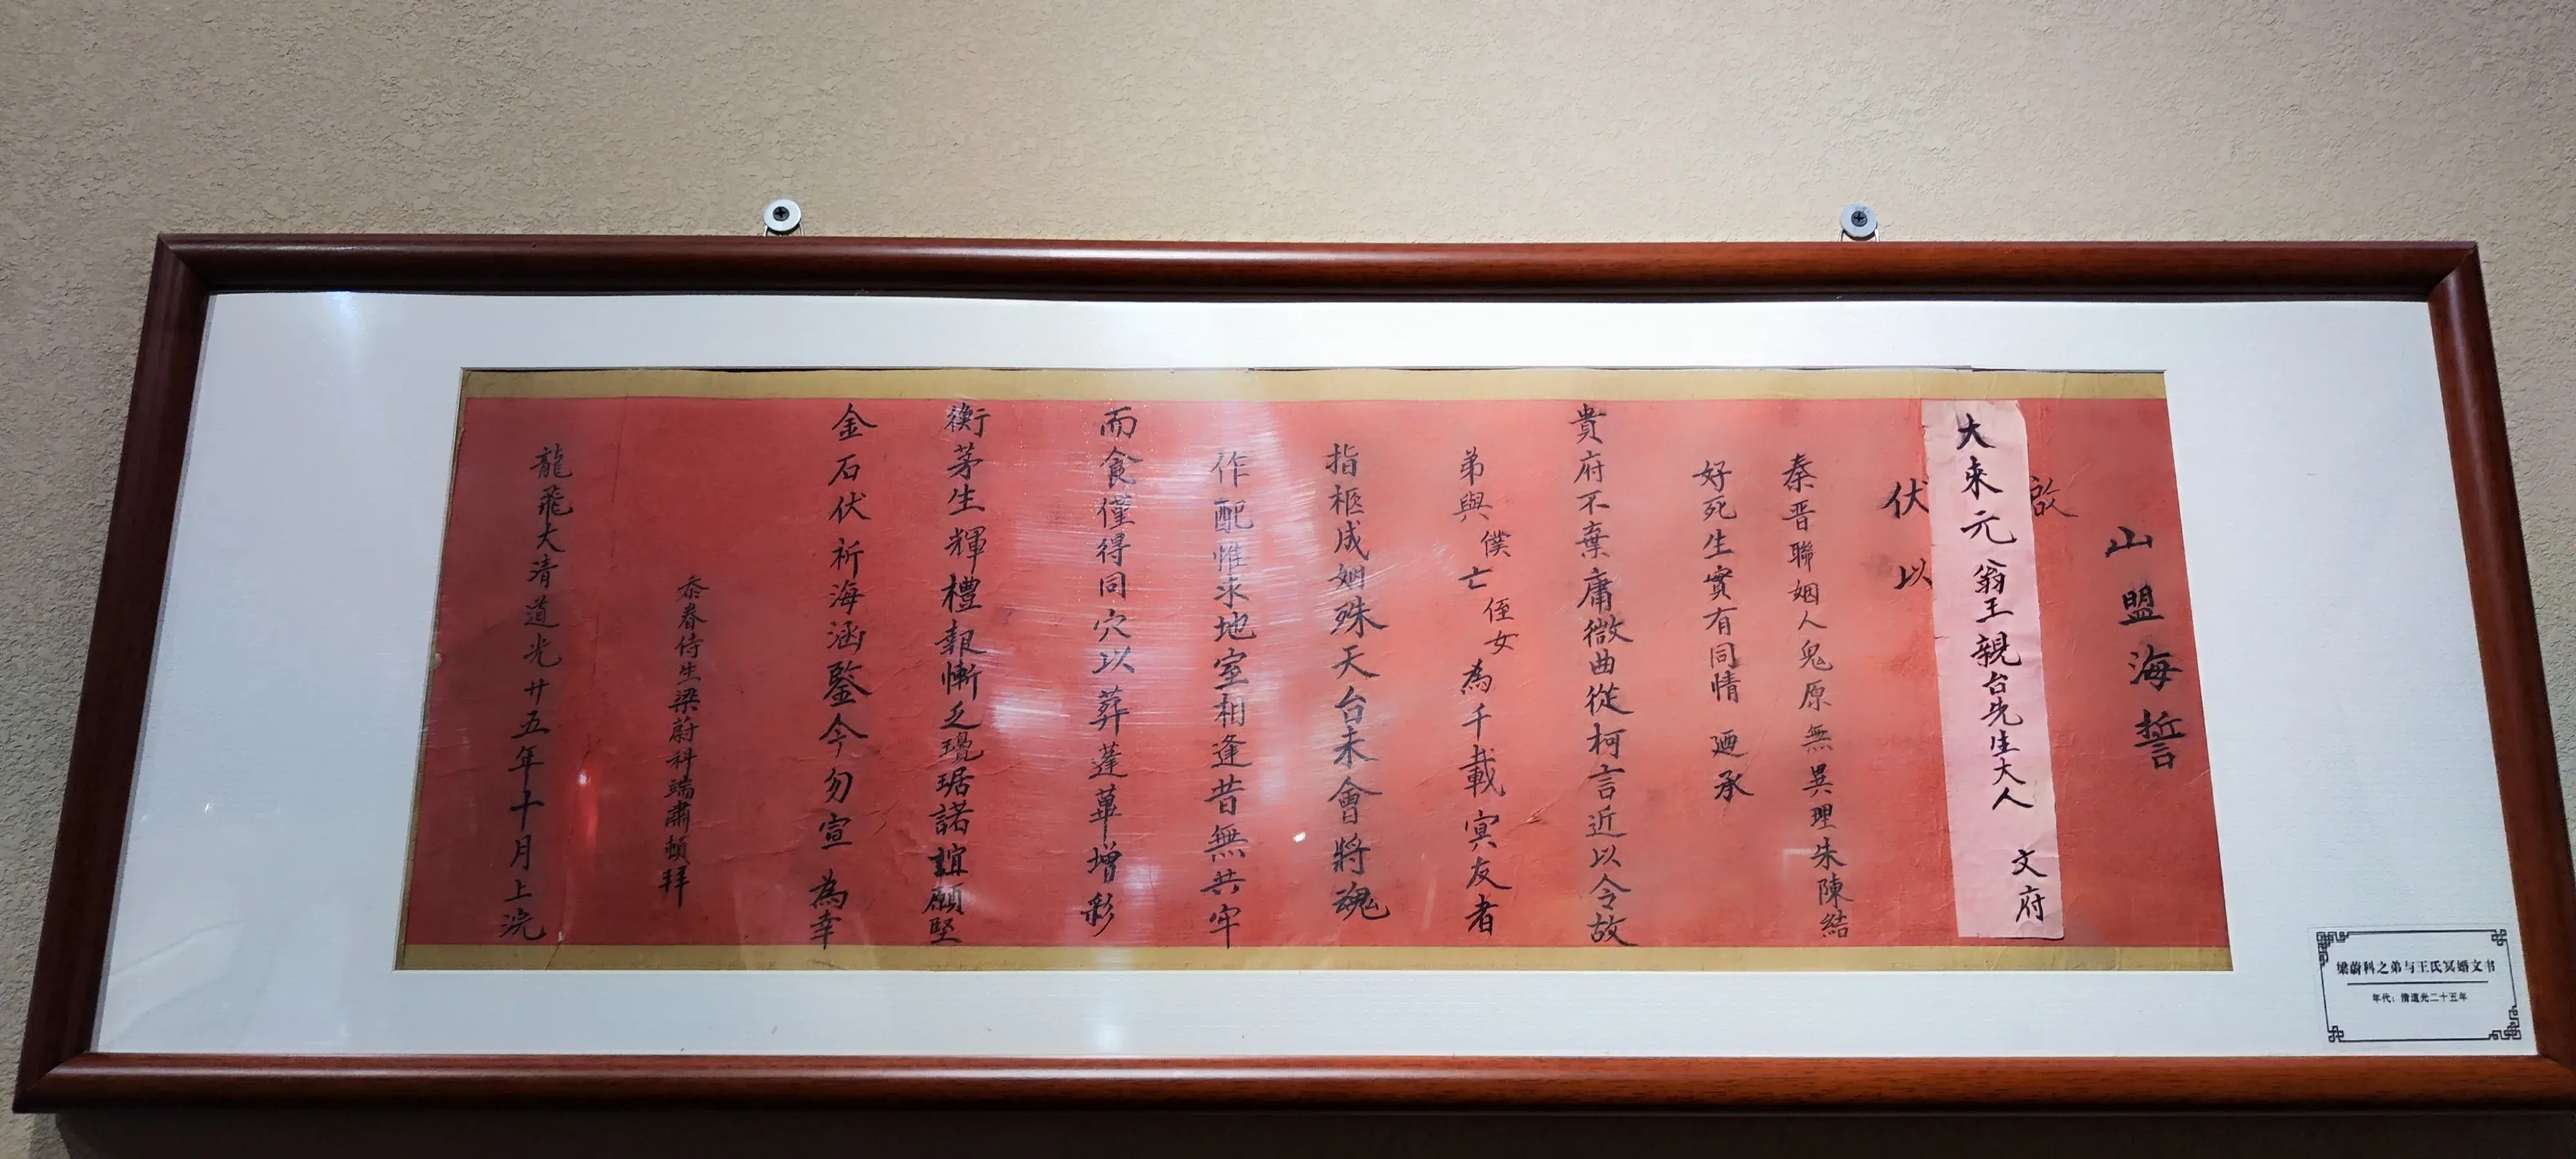 山盟海誓
啟
大来元翁王親台先生大人 文府
伏以
秦晋聯姻人鬼原無異理朱陳結
好死生實有同情 廼承
貴府不棄庸微曲從柯言近以令故
弟與僕亡侄女為千載冥友者
指柩成姻殊天台未會將魂
作配惟求地室相逢昔無共牢
而食僅得同穴以葬蓬蓽增彩
衡茅生輝禮報慚乏瓊琚諾誼願堅
金石伏祈海涵鑒今勿宣 為幸
忝眷侍生梁蔚科端肅頓拜
龍飛大清道光廿五年十月上浣
梁蔚科之弟与王氏冥婚文书
年代：清道光二十五年